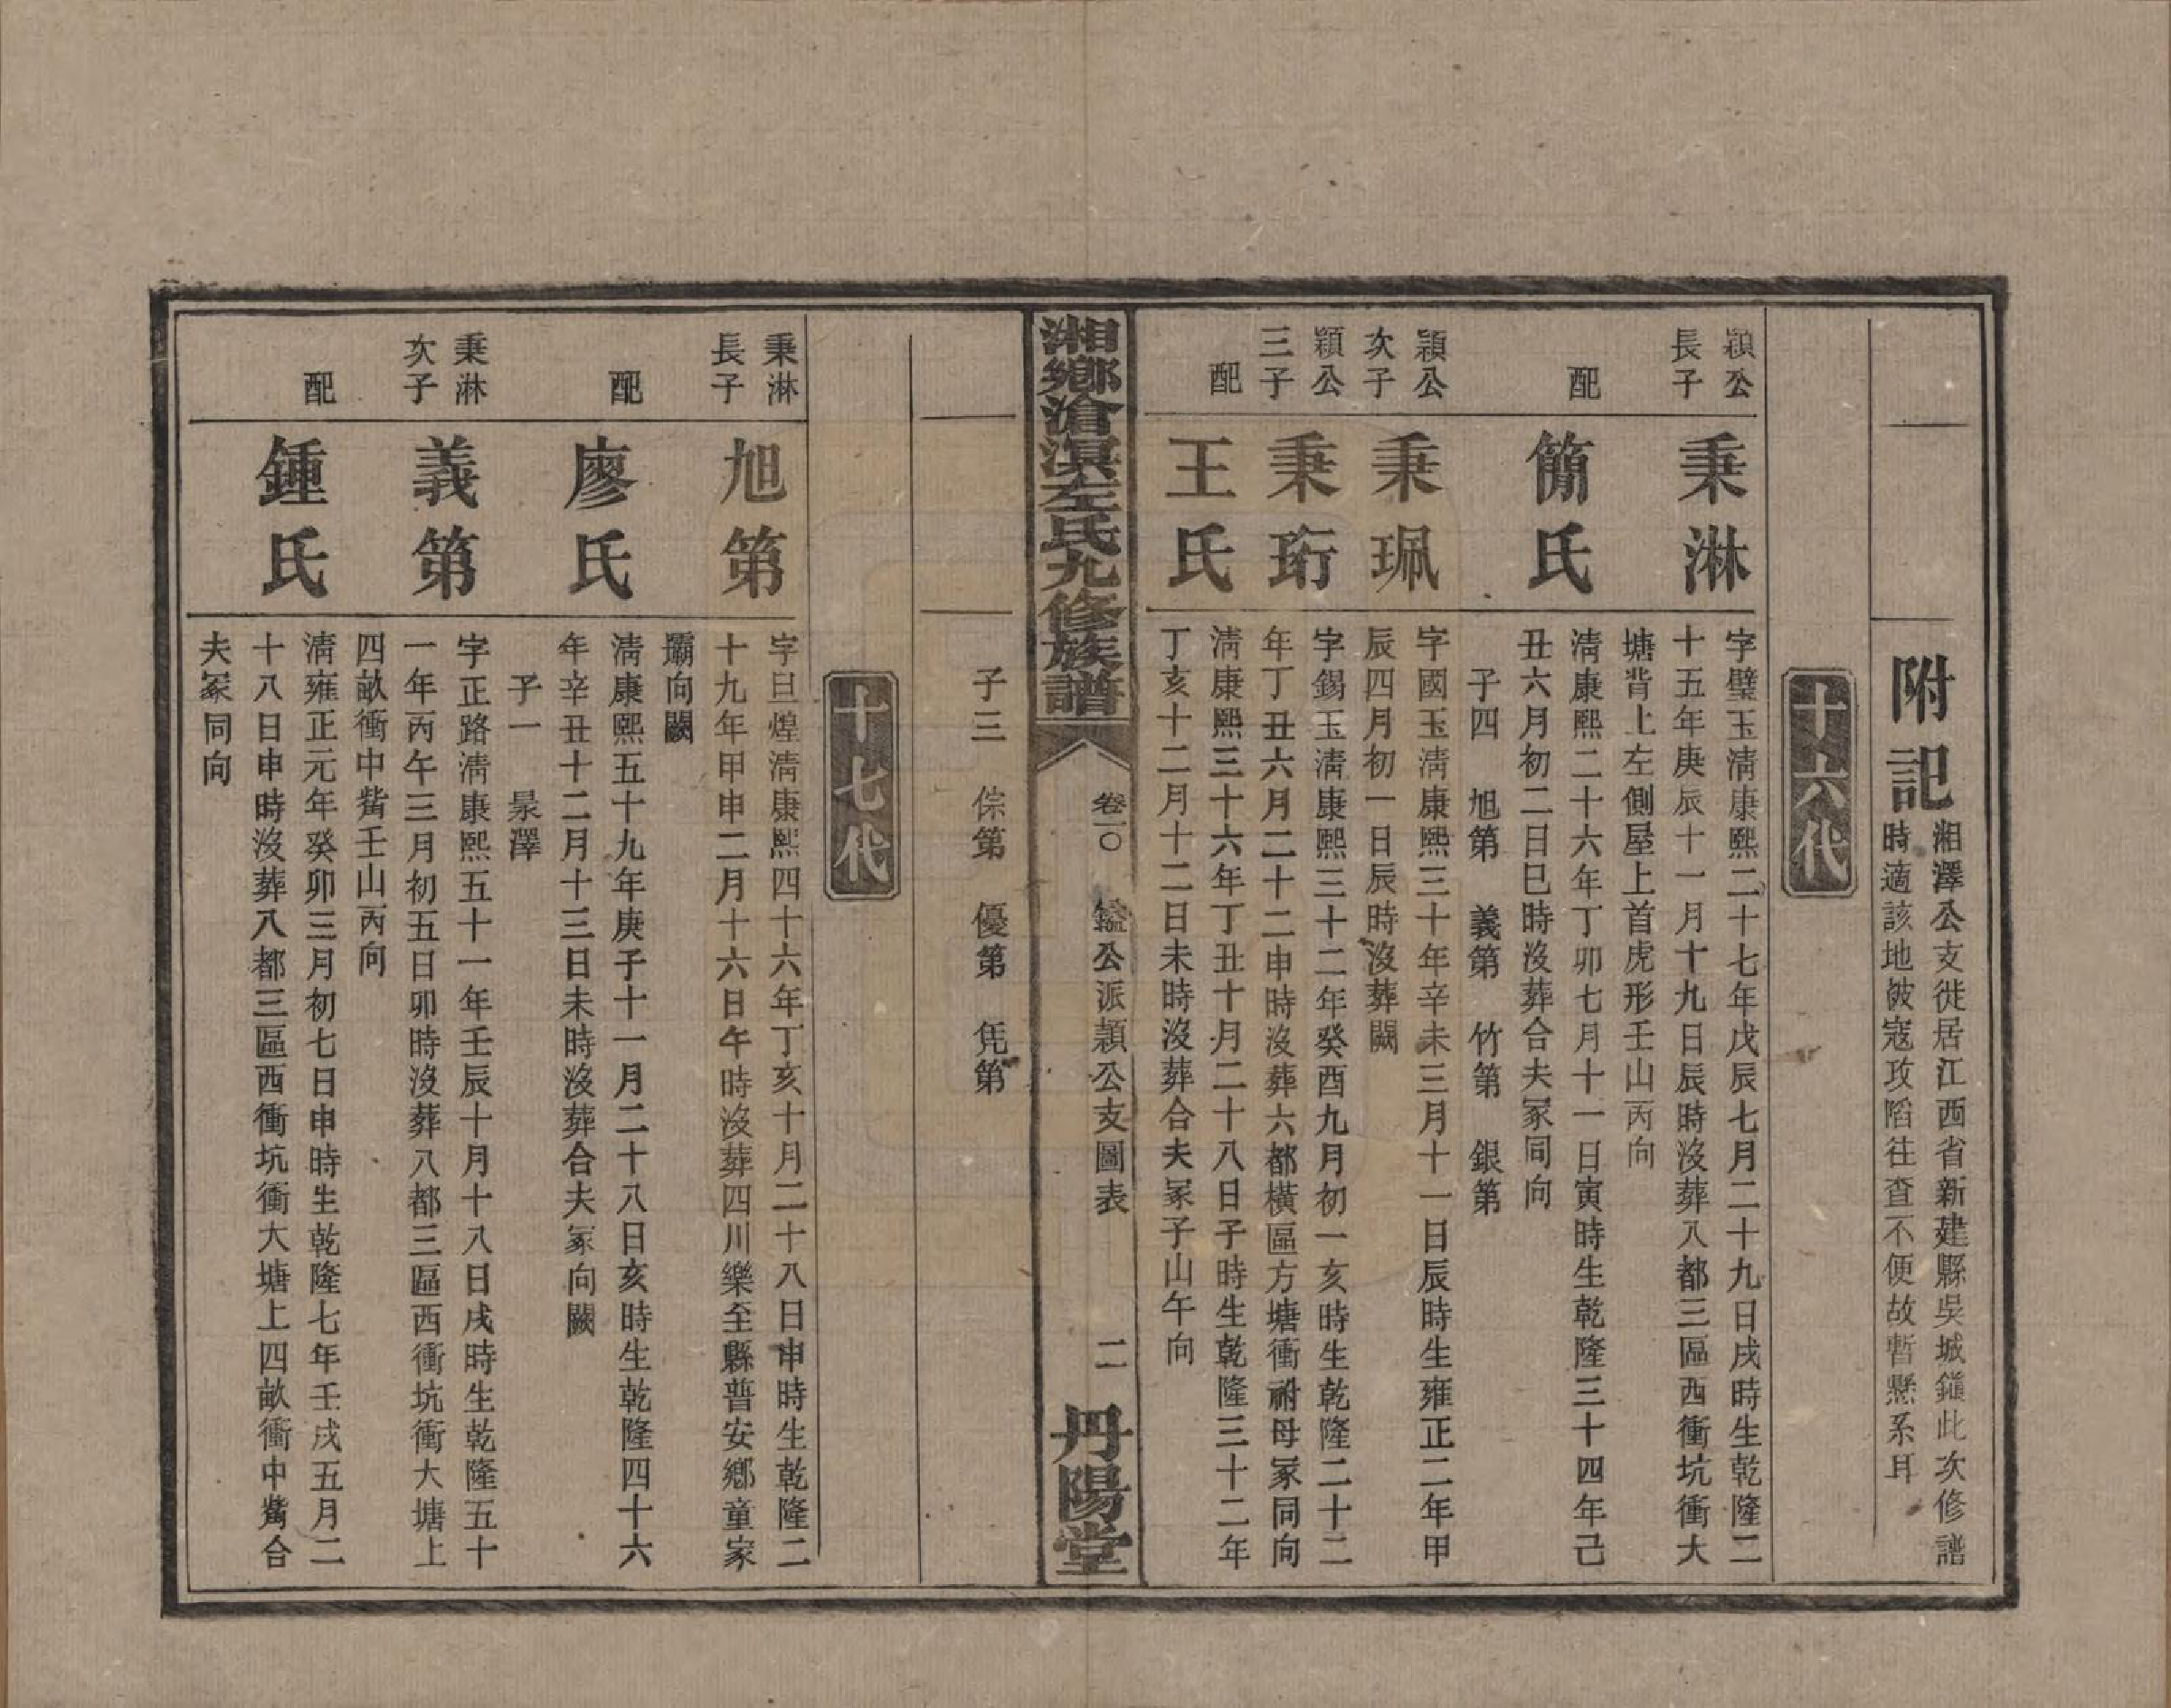 附記
湘澤公支徙居江西省新建縣吳城鎮此次修譜
時適該地被寇攻陷往查不便故暫懸系耳
十六代
穎公
長子
秉淋
字璧玉淸康熙二十七年戊辰七月二十九日戌時生乾隆二
十五年庚辰十一月十九日辰時沒葬八都三區西衝坑衝大
塘背上左側屋上首虎形壬山丙向
配
簡氏
淸康熙二十六年丁卯七月十一日寅時生乾隆三十四年己
丑六月初二日巳時沒葬合夫冢同向
子四 旭第 義第 竹第 銀第
穎公
次子
秉珮
字國玉淸康熙三十年辛未三月十一日辰時生雍正二年甲
辰四月初一日辰時沒葬闕
穎公
三子
秉珩
字錫玉淸康熙三十二年癸酉九月初一亥時生乾隆二十二
年丁丑六月二十二申時沒葬六都橫區方塘衝祔母冢同向
配
王氏
淸康熙三十六年丁丑十月二十八日子時生乾隆三十二年
丁亥十二月十二日未時沒葬合夫冢子山午向
湘鄉滄溟左氏九修族譜
卷一〇
鎰公派穎公支圖表
二
丹陽堂
子三 倧第 優第 凭第
十七代
秉淋
長子
旭第
字旦煌淸康熙四十六年丁亥十月二十八日申時生乾隆二
十九年甲申二月十六日午時沒葬四川樂至縣普安鄉童家
壩向闕
配
廖氏
淸康熙五十九年庚子十一月二十八日亥時生乾隆四十六
年辛丑十二月十三日未時沒葬合夫冢向闕
子一 景澤
秉淋
次子
義第
字正路淸康熙五十一年壬辰十月十八日戌時生乾隆五十
一年丙午三月初五日卯時沒葬八都三區西衝坑衝大塘上
四畝衝中嘴壬山丙向
配
鍾氏
淸雍正元年癸卯三月初七日申時生乾隆七年壬戌五月二
十八日申時沒葬八都三區西衝坑衝大塘上四畝衝中嘴合
夫冢同向